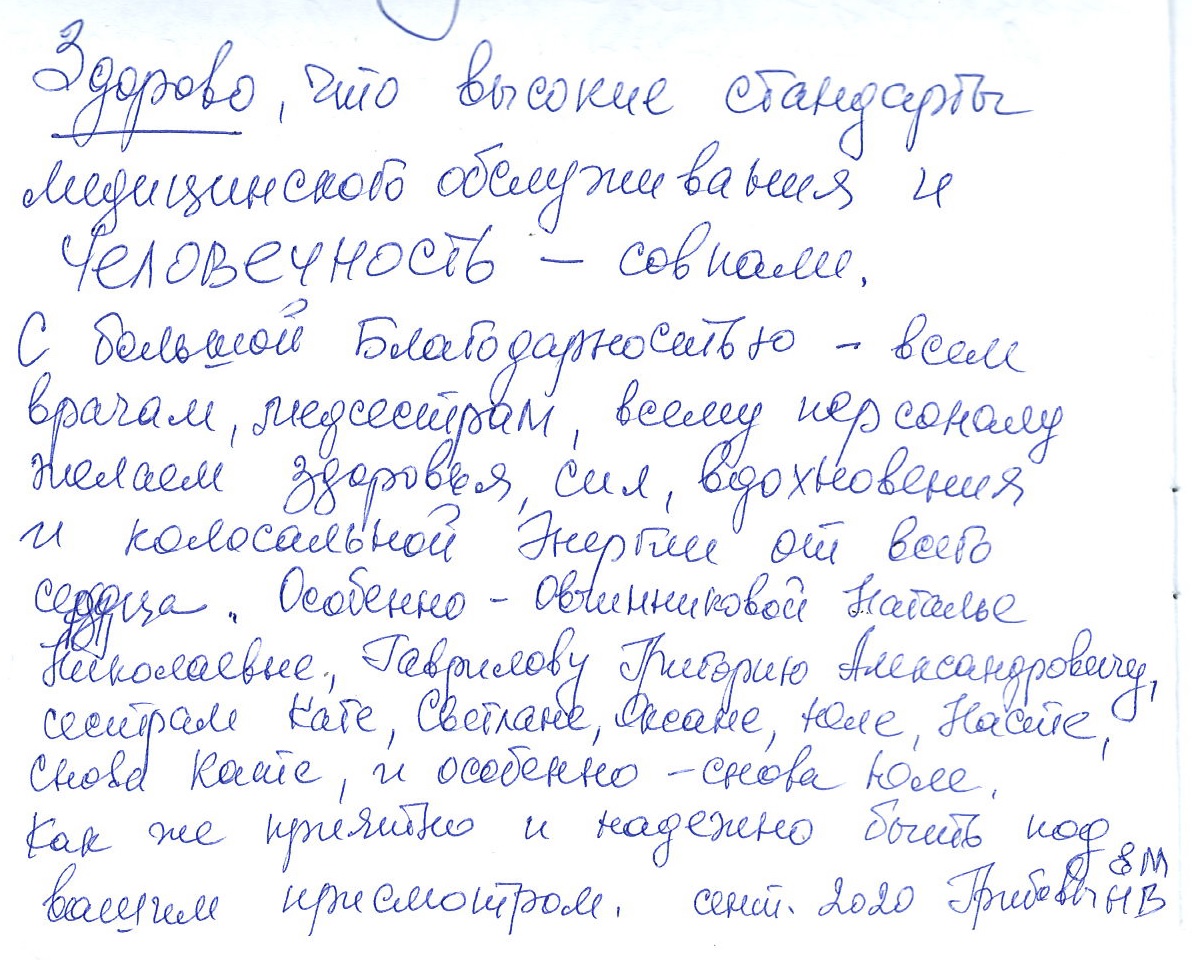 Здорово, что высокие стандарты
медицинского обслуживания и
ЧЕЛОВЕЧНОСТЬ – совпали.
С большой Благодарностью – всем
врачам, медсестрам, всему персоналу
желаем здоровья, сил, вдохновения
и колосальной Энергии от всего
сердца. Особенно – Овчинниковой Наталье
Николаевне, Гаврилову Григорию Александровичу,
сестрам Кате, Светлане, Оксане, Юле, Насте,
снова Кате, и особенно – снова Юле.
Как же приятно и надежно быть под
вашим присмотром. сент. 2020 Грибовы ЕМ
НВ